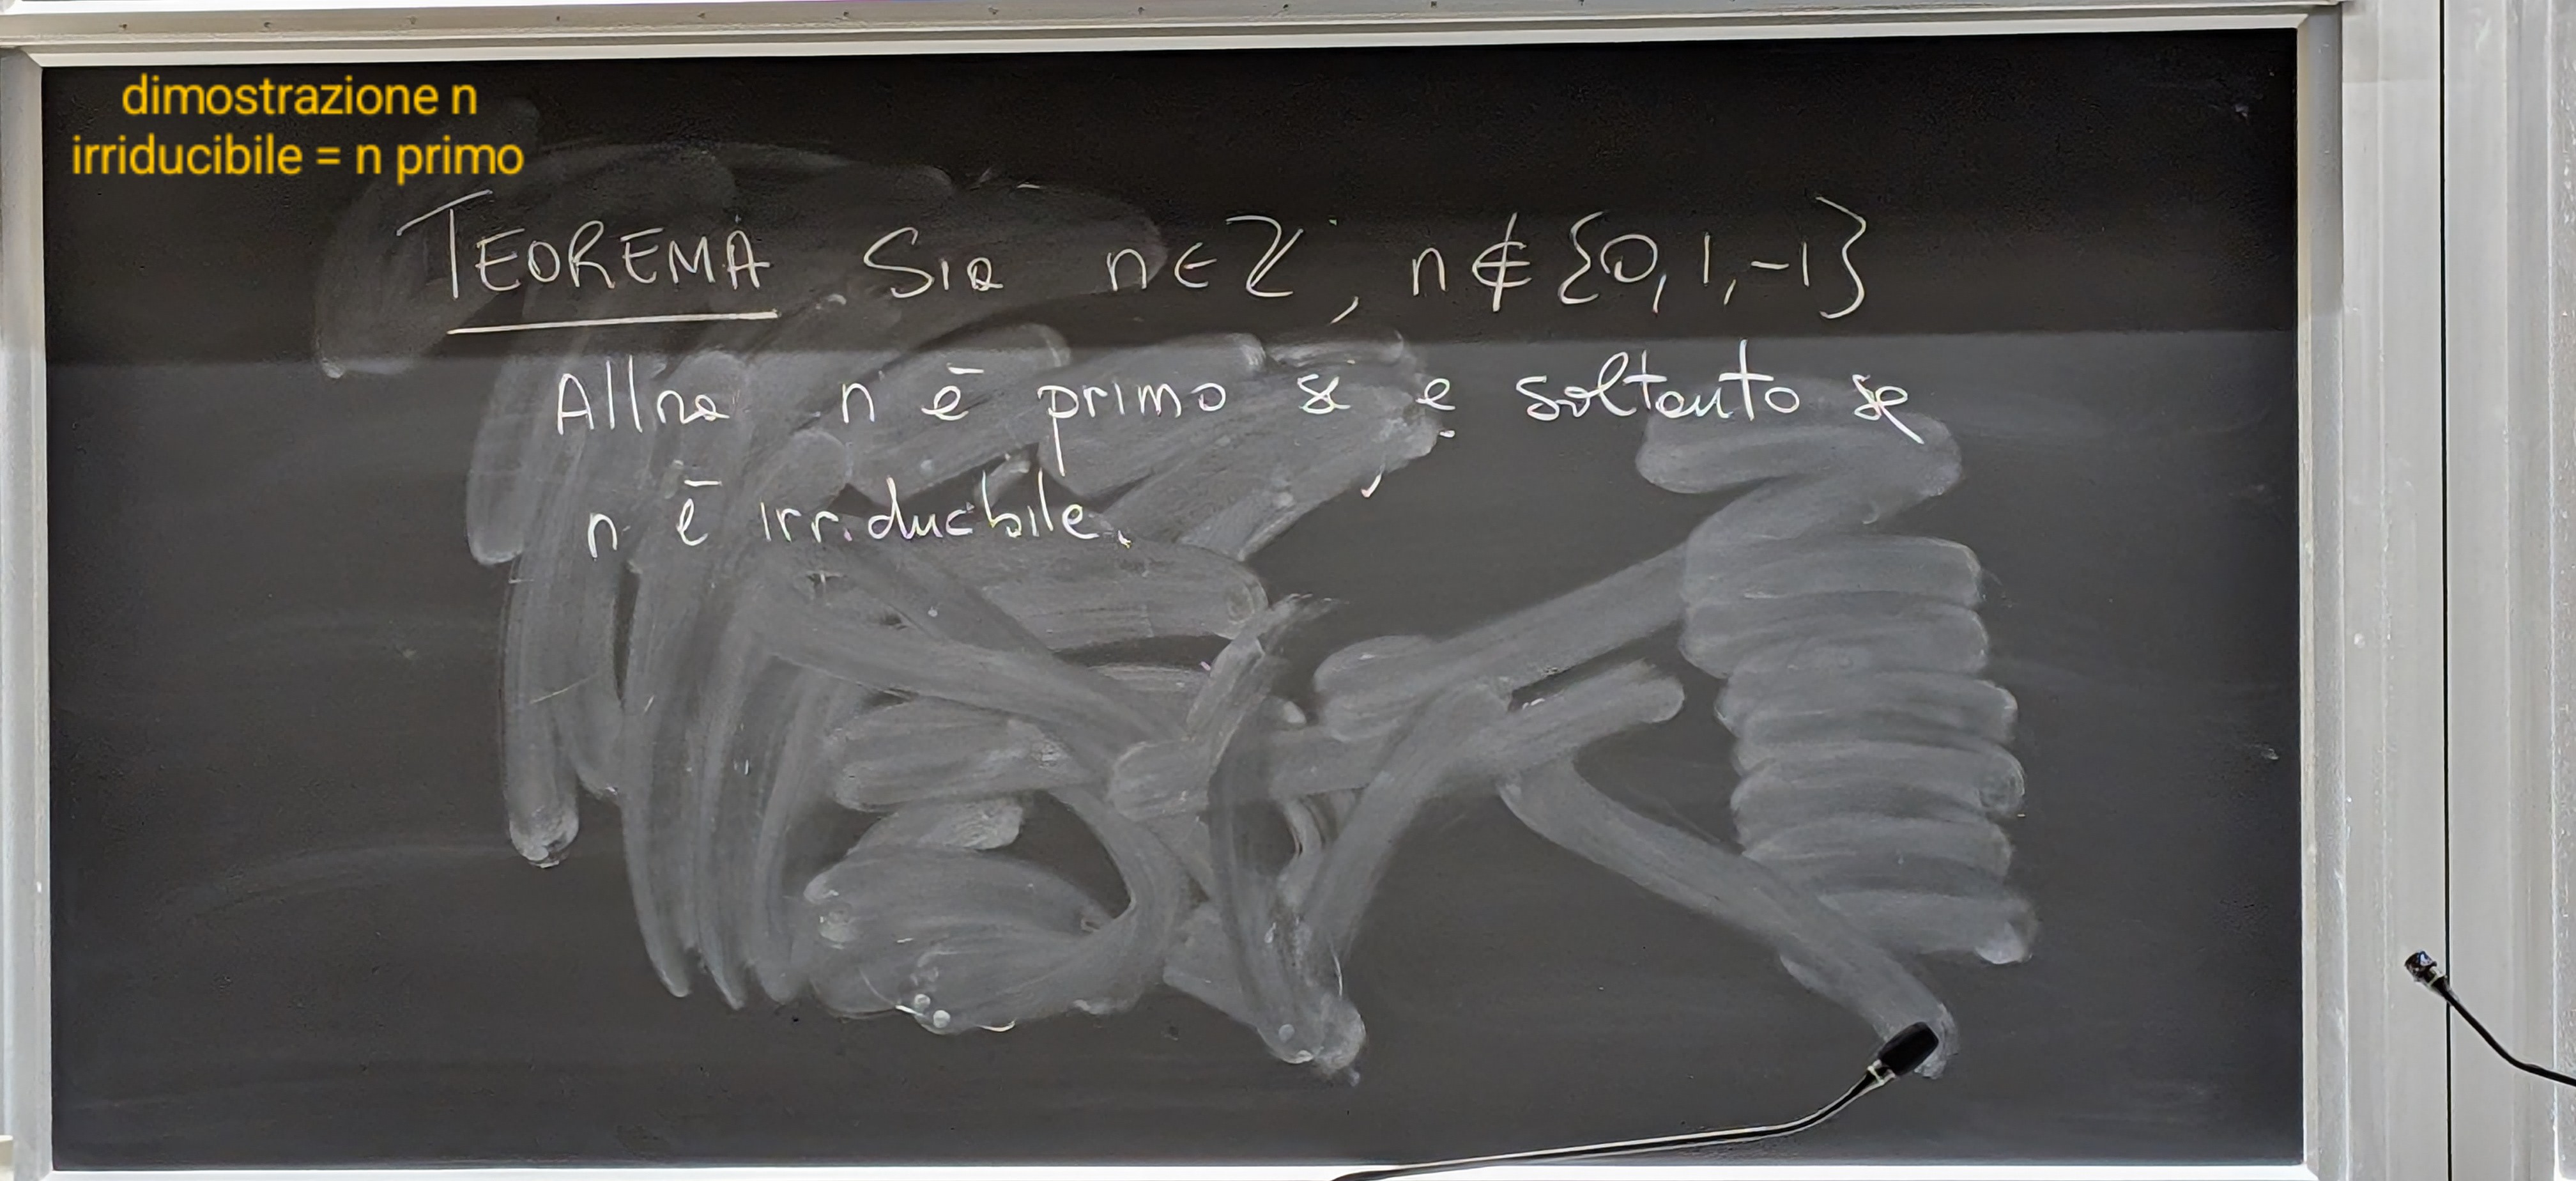 dimostrazione n
irriducibile = n primo
TEOREMA Sia n∈ℤ, n∉{0,1,-1}
Allora n è primo se e soltanto se
n è irriducibile.